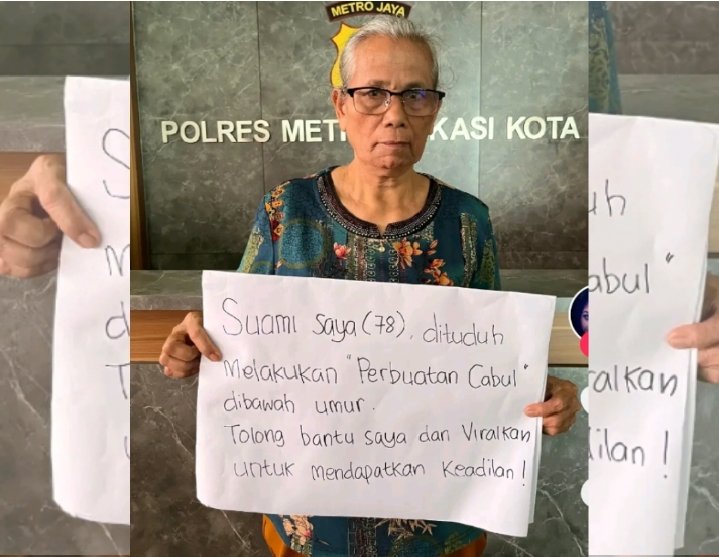 METRO JAYA
POLRES MET KASI KOTA
Suami saya (78), dituduh
melakukan "Perbuatan Cabul"
dibawah umur.
Tolong bantu saya dan Viralkan
untuk mendapatkan Keadilan!